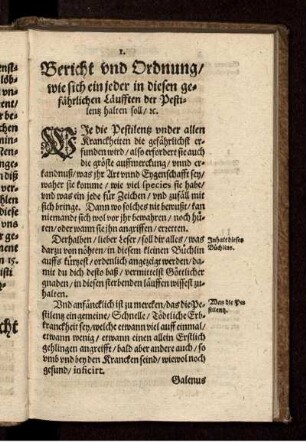 1.
Bericht vnd Ordnung/
wie sich ein jeder in diesen ge-
fährlichen Läufften der Pesti-
lentz halten soll/ ꝛc.
WJe die Pestilentz vnder allen
Kranckheiten die gefährlichst er-
funden wird/ also erfordert sie auch
die gröste auffmerckung/ vnnd er-
kandnuß/ was jhr Art vnnd Eygenschafft sey/
waher sie komme/ wie viel species sie habe/
vnd was ein jede für Zeichen/ vnd zufäll mit
sich bringe. Dann wo solches nit bewußt/ kan
niemande sich wol vor jhr bewahren/ noch hü-
ten/ oder wann sie jhn angriffen/ erretten.
Derhalben/ lieber Leser/ soll dir alles/ was
darzu von nöhten/ in diesem kleinen Büchlin
auffs kürtzest/ ordenlich angezeigt werden/ da-
mit du dich desto baß/ vermittelst Göttlicher
gnaden/ in diesen sterbenden läufften wissest zu-
halten.
Jnhalt dieses
Büchleins.
Vnd anfäncklich ist zu mercken/ das die Pe-
stilentz ein gemeine/ Schnelle/ Tödtliche Erb-
kranckheit sey/ welche etwann viel auff einmal/
etwann wenig/ etwann einen allein Erstlich
gehlingen angreifft/ bald aber andere auch/ so
vmb vnd bey den Krancken seind/ wiewol noch
gesund/ inficirt.
Was die Pe-
stilentz.
Galenus